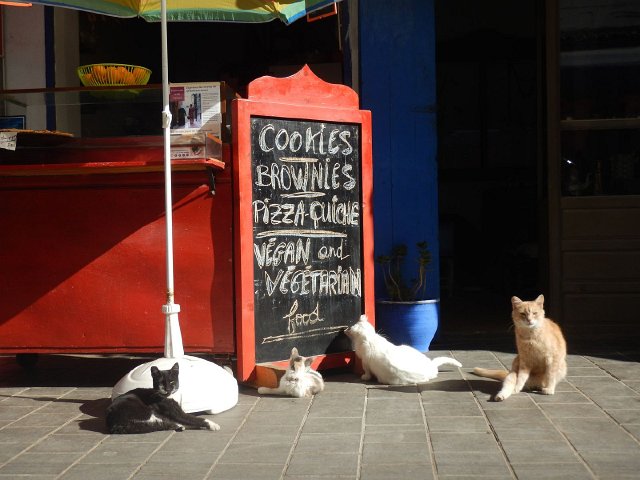 COOKIES
BROWNIES
PIZZA-QUICHE
VÉGAN and
VÉGÉTARIAN
food